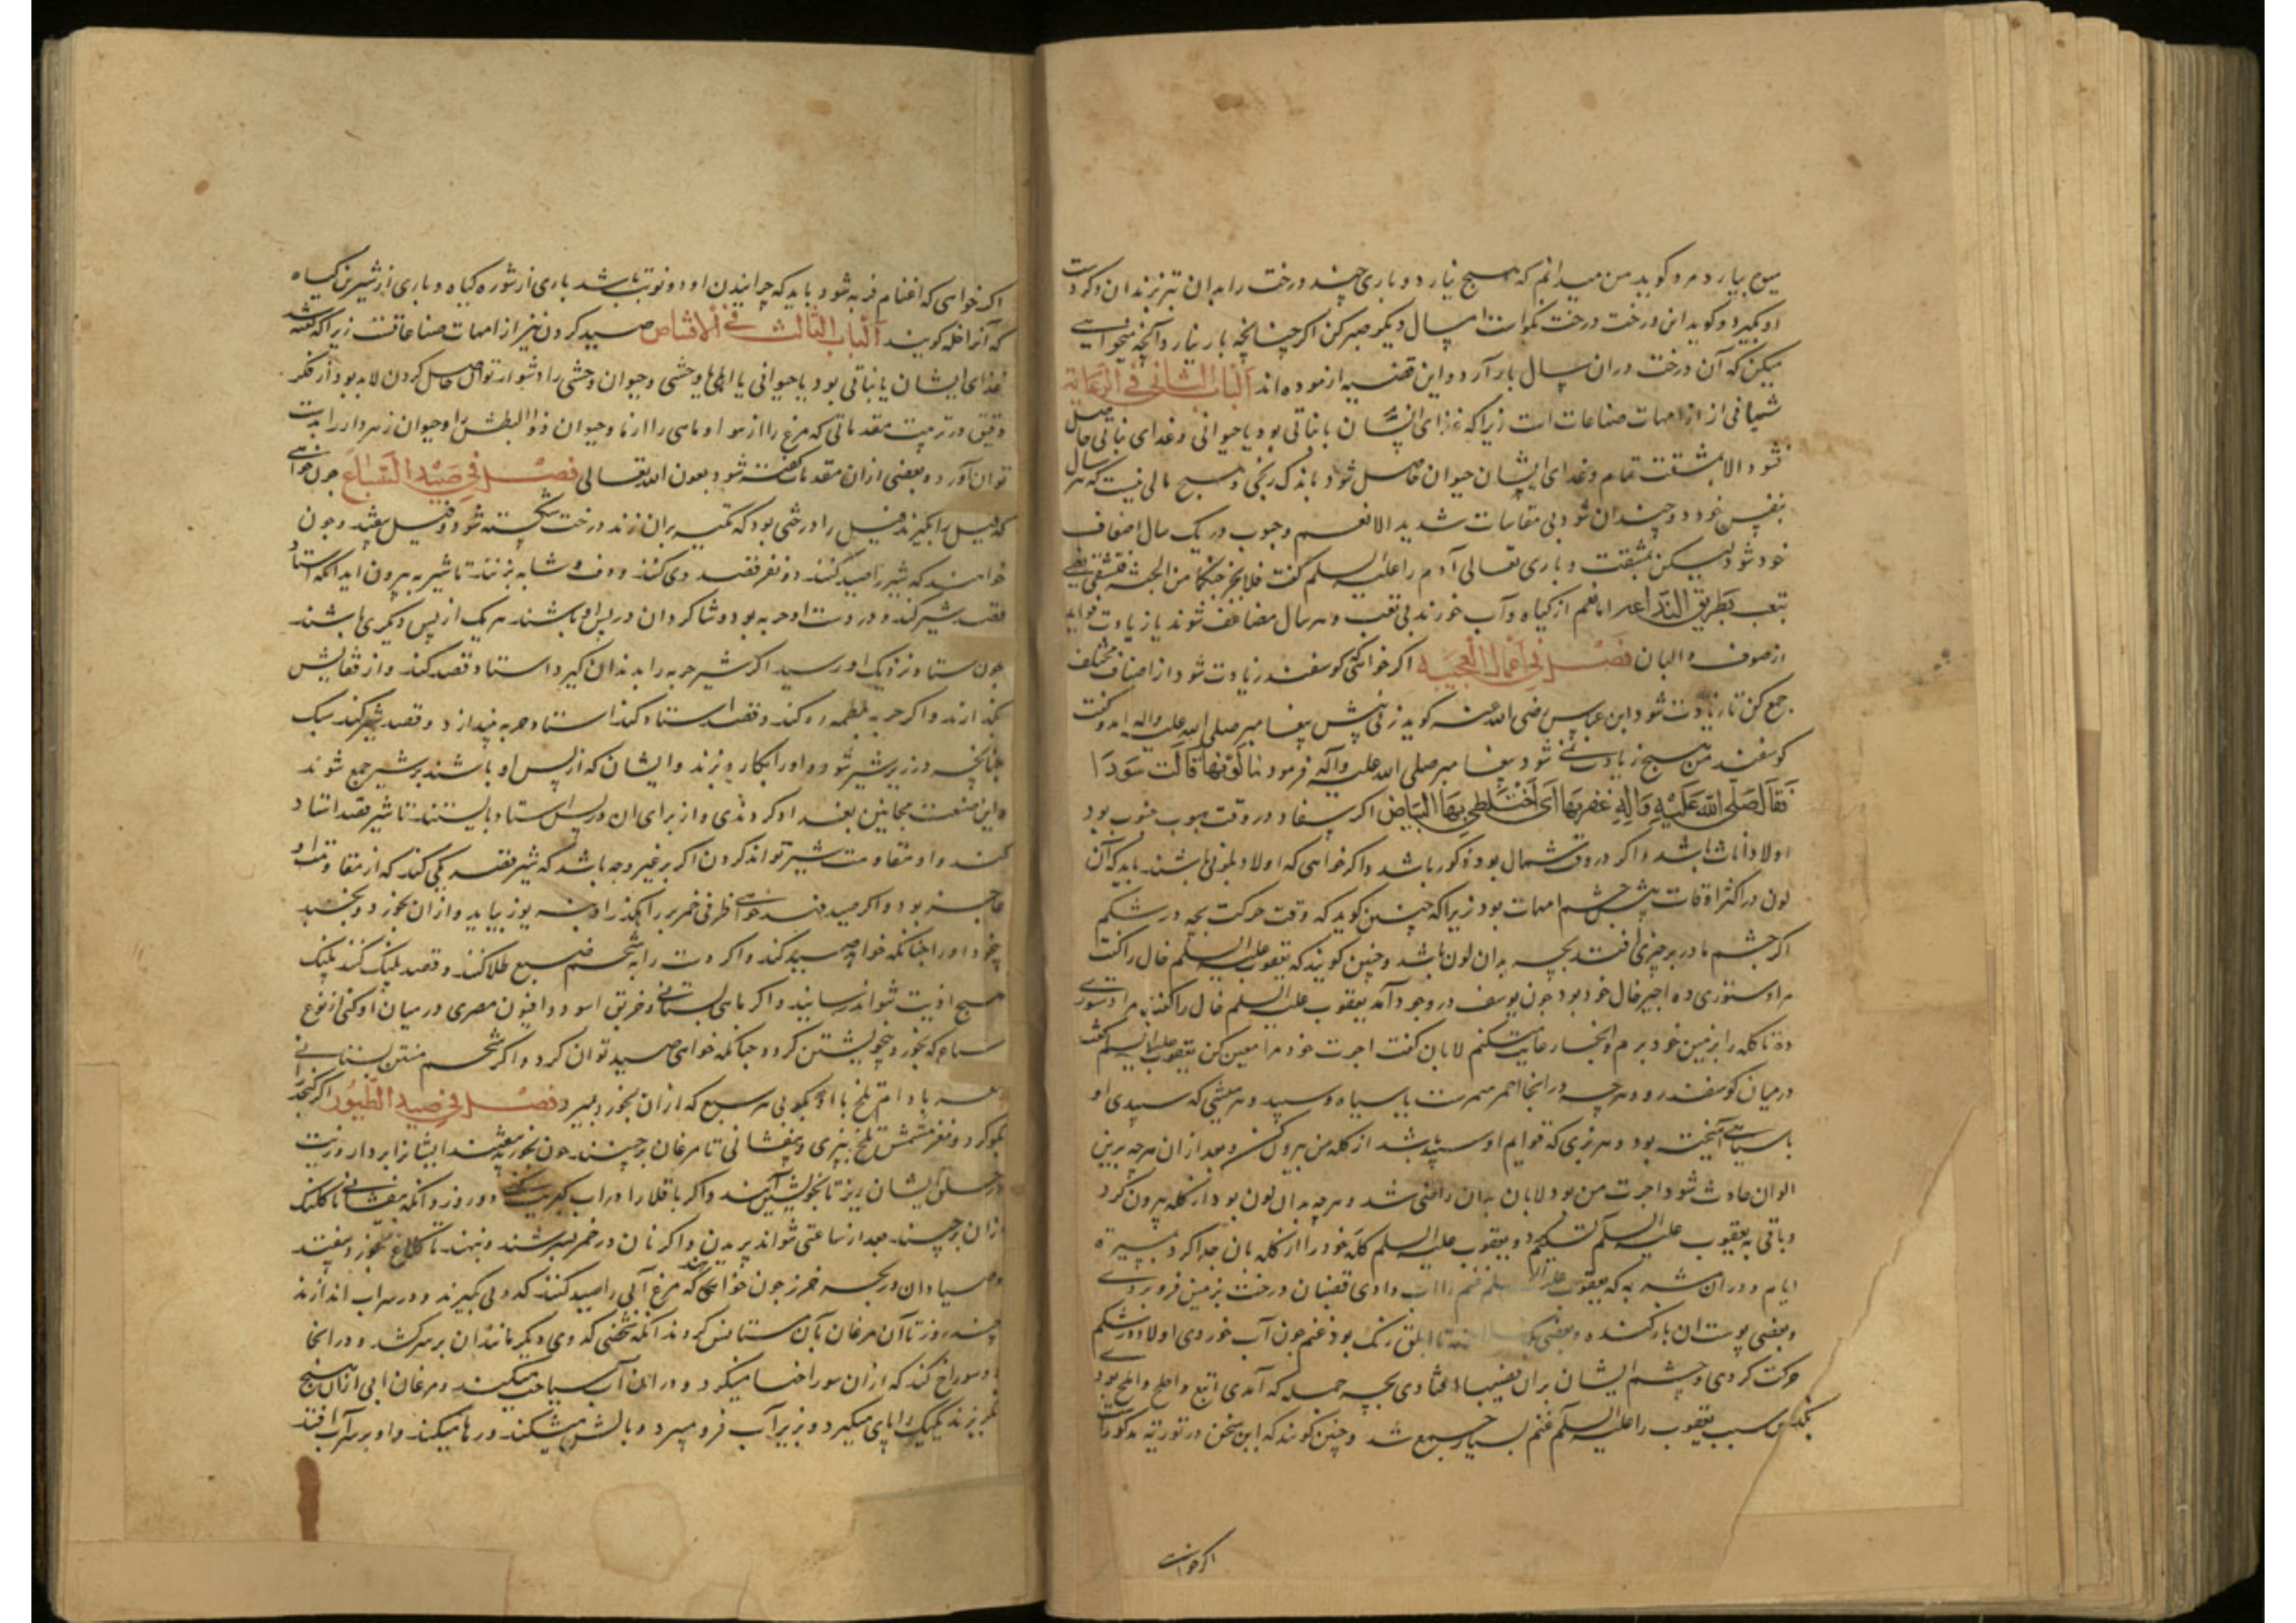 میوه بیارد مرد کوید من میدانم که هیچ نیارد و باری چند درخت را بدان تبر بزند ان دکر دست
او بکیرد و کوید این درخت درخت نکوات امسال دیکر صبر کن اکر چنانچه بار نیارد آنچه میخواهی
میکن که آن درخت دران سال بار آرد و این قضیه ازموده اند الباب الثانی فی الرعاة
از امهات صناعات است زیرا که غذای انسان یا نباتی بود یا حیوانی و غذای نباتی حاصل
نشود الا بمشقت تمام و غذای ایشان حیوان حاصل شود باندک رنجی و هیچ مالی نیست که هر سال
بنفس خود دو چندان شود بی مقاسات شدید الا نعم وجوب در یک سال اضعاف
خود شود لیکن بمشقت و باری تعالی آدم را علیه السلم کفت فلا یخرجنکما من الجنة فتشقی یعنی
تتعب بطریق الندا اما نعم از کیاه و آب خورند بی تعب و هر سال مضاعف شوند با زیادت فواید
از صوف و البان فصل فی اعمال العجیبه اکر خواهی که کوسفند زیادت شود از اصناف مختلف
جمع کن تا زیادت شود ابن عباس رضی الله عنه کوید زنی پیش پیغامبر صلی الله علیه واله امد و کفت
کوسفند من هیچ زیادت نمی شود پیغامبر صلی الله علیه وآله فرمود ما لونها قالت سودا
فقال صلی الله علیه واله غفریها ای اختلطی بها البیاض اکر سفاد در وقت هبوب جنوب بود
اولاد اناث باشد و اکر در وقت شمال بود ذکور باشد و اکر خواهی که اولاد بلونی باشند باید که آن
لون در اکثر اوقات پیش چشم امهات بود زیرا که چنین کوید که وقت حرکت بچه در شکم
اکر چشم مادر بر چیزی افتد بچه بدان لون باشد و چنین کویند که یعقوب علیه السلم خال را کفت
مرا دستوری ده اجیر خال خود بود چون یوسف در وجود آمد یعقوب علیه السلم خال را کفت مرا دستوری
ده تا کله را بزمین خود برم و انجا رعایت میکنم لابان کفت اجرت خود مرا معین کن یعقوب علیه السلم کفت
در میان کوسفند رو و هر چه در انجا احمر یا سیاه و سپید و هر میشی که سپیدی او
با سیاهی آمیخته بود و هر بزی که قوایم او سپید باشد از کله من بیرون کن و بعد از ان هر چه برین
الوان حادث شود اجرت من بود لابان بدان راضی شد و هر چه بدان لون بود از کله بیرون کرد
و باقی به یعقوب علیه السلم تسلیم کرد و یعقوب علیه السلم کله خود را از کله لابان جدا کرد بمسیره
ایام و دران شبه که یعقوب علیه السلم غنم را آب دادی قضبان درخت بزمین فرو بردی
و بعضی پوست ان باز کنده و بعضی تا ابلق رنک بود غنم چون آب خوردی اولاد در شکم
حرکت کردی و چشم ایشان بران قضیبها افتادی بچه جمله که آمدی ابقع و املح بود
بدین سبب یعقوب را علیه السلم غنم بسیار جمع شد و چنین کویند که این سخن در توریة مذکور است
اکر خواهی
اکر خواهی که اغنام فربه شود باید که چرانیدن او دو نوبت باشد باری از شوره کیاه و باری از شیرین کیاه
که آنرا خله کویند الباب الثالث فی الاقتناص صید کردن نیز از امهات صناعاتست زیرا که کفته شد
غذای ایشان یا نباتی بود یا حیوانی یا اهلی یا وحشی و حیوان وحشی را دشوار توان حاصل کردن لابد بود از فکر
دقیق در ترتیب مقدماتی که مرغ را از هوا و ماهی را از ما و حیوان ذو البطش را و حیوان زهر دار را بدست
توان آورد و بعضی ازان مقدمات کفته شود بعون الله تعالی فصل فی صید السباع چون خواهی
که فیل را بکیرند فیل را درختی بود که تکیه بران زند درخت شکسته شود و فیل بیفتد و چون
خواهند که شیر را صید کنند دو نفر قصد وی کنند و دف و شبابه بزنند تا شیر بیرون آید انکه استاد
قصد شیر کند و در دست او حربه بود و شاکردان در پس او باشند هر یک از پس دیکری باشند
چون استاد نزدیک او رسید اکر شیر حربه را بدندان کیرد استاد قصد کند و از قفایش
بکذارند و اکر حربه بلطمه رد کند و قصد استاد کند استاد حربه بیندازد و قصد شیر کند سبک
چنانچه در زیر شیر شود و او را بکارد بزند و ایشان که از پس او باشند بر شیر جمع شوند
و این صنعت مجانین بغداد کردندی و از برای ان در پس استاد بایستند تا شیر قصد استاد
کند و او مقاومت شیر تواند کردن اکر بر غیر وجه باشد که شیر قصد یکی کند که از مقاومت او
عاجز بود و اکر صید فهد خواهی ظرفی خمر بر راهکذر او بنه یوز بیاید و ازان بخورد و بخسبد
او را چنانکه خواهد صید کند و اکر دست را به شحم ضبع طلا کنند و قصد پلنک کنند پلنک
هیچ اذیت نتواند رسانید و اکر ماهی بستانی و خربق اسود و افیون مصری در میان او کنی از نوع
سباع که بخورد بیخویشتن کردد چنانکه خواهی صید توان کرد و اکر شحم منتن بستانی
و بادام تلخ با او بکوبی هر سبع که ازان بخورد بمیرد فصل فی صید الطیور اکر کنجد را
بکوکرد و مغز مشمش تلخ بپزی و بیفشانی تا مرغان برچینند چون بخورند بیفتند ایشانرا بردار و زیت
در حلق ایشان ریز تا بخویش آیند و اکر باقلا را در اب کبریت دو روز و انکه بیفشانی تا کلنک
ازان برچیند بعد از ساعتی نتواند پریدن و اکر نان در خمر بسرشند و بنهند تا کلاغ بخورد بیفتد
و صیادان در بحیره خزر چون خواهند که مرغ آبی را صید کنند کدوئی بکیرند و در سر اب اندازند
چند روز تا آن مرغان بآن مستانس کردند انکه شخصی کدوی دیکر مانند ان بر سر کشد و در انجا
دو سوراخ کند که ازان سوراخها میکرد و دران آب سباحت میکند و مرغان ابی ازان هیچ
نکریزند یکیک را پای میکیرد و بزیر آب فرو میبرد و بالش میشکند و رها میکند و او بر سر آب افتد